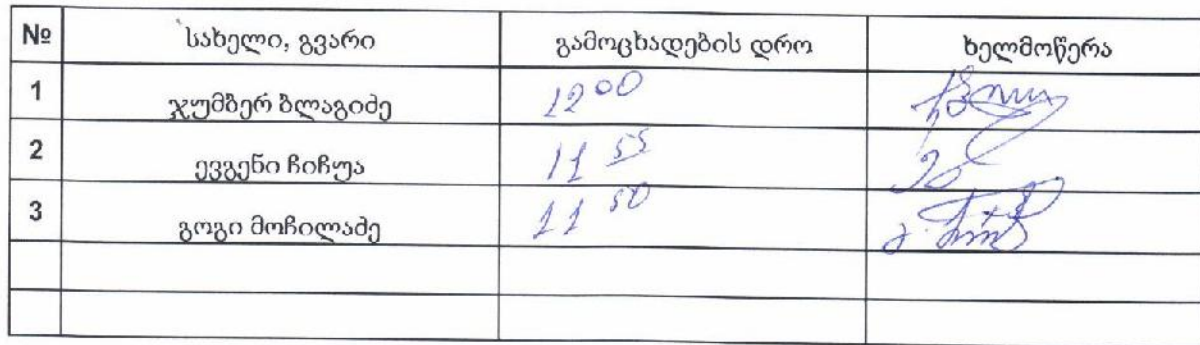 № სახელი, გვარი გამოცხადების დრო ხელმოწერა
1 ჯუმბერ ბლაგიძე 12 00
2 ევგენი ჩიჩუა 11 55
3 გოგი მოჩილაძე 11 50